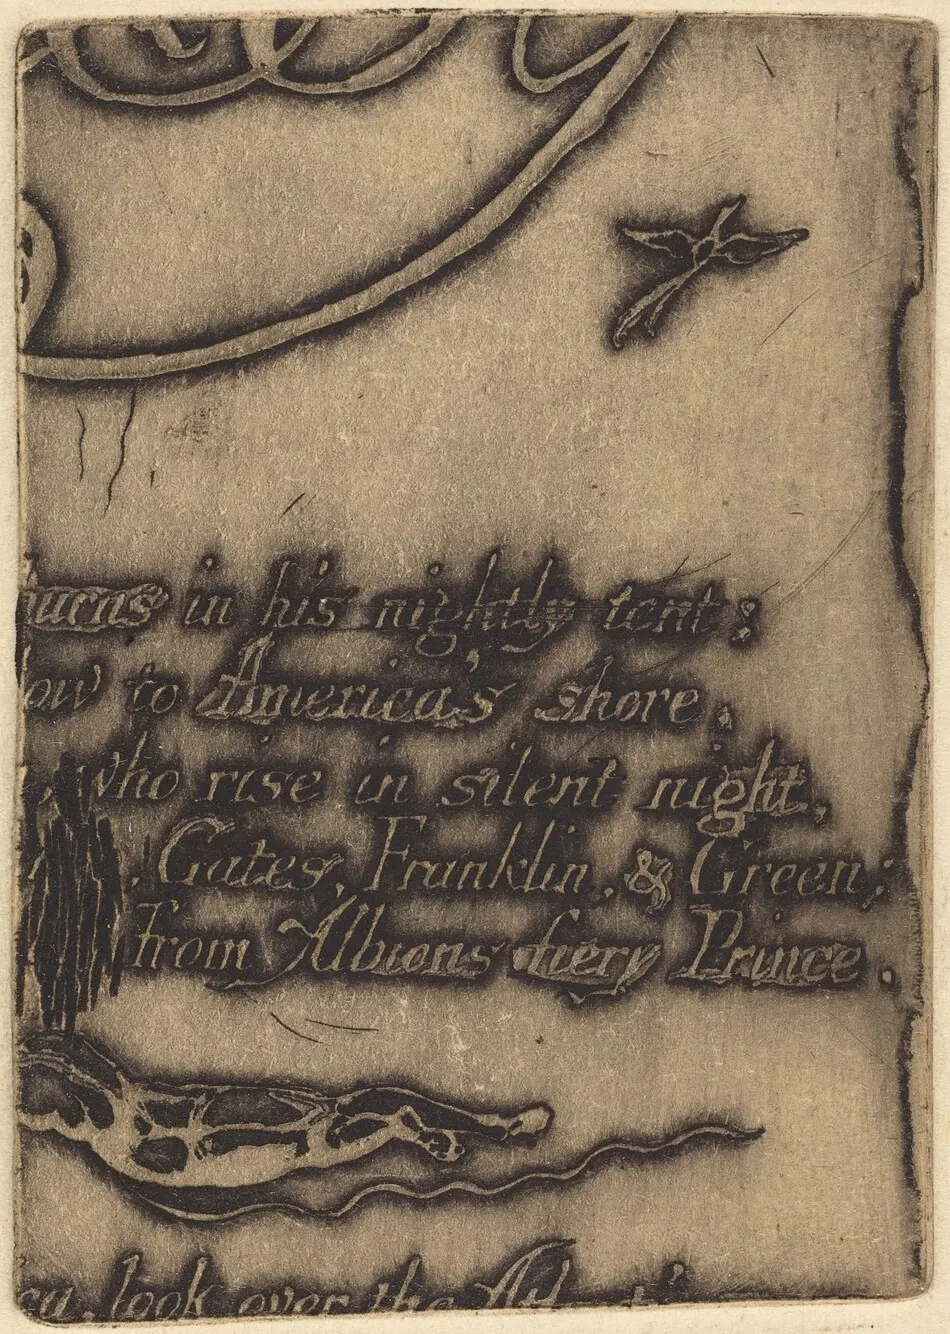 burns in his nightly tent:
ow to America's shore,
, who rise in silent night,
, Gates, Franklin, & Green;
from Albions fiery Prince.
ca, look over the Atlant